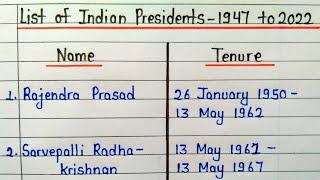 List of Indian Presidents-1947 to 2022
Name Tenure
1. Rajendra Prasad 26 January 1950 -
13 May 1962
2. Sarvepalli Radha- 13 May 1961 -
krishnan 13 May 1967